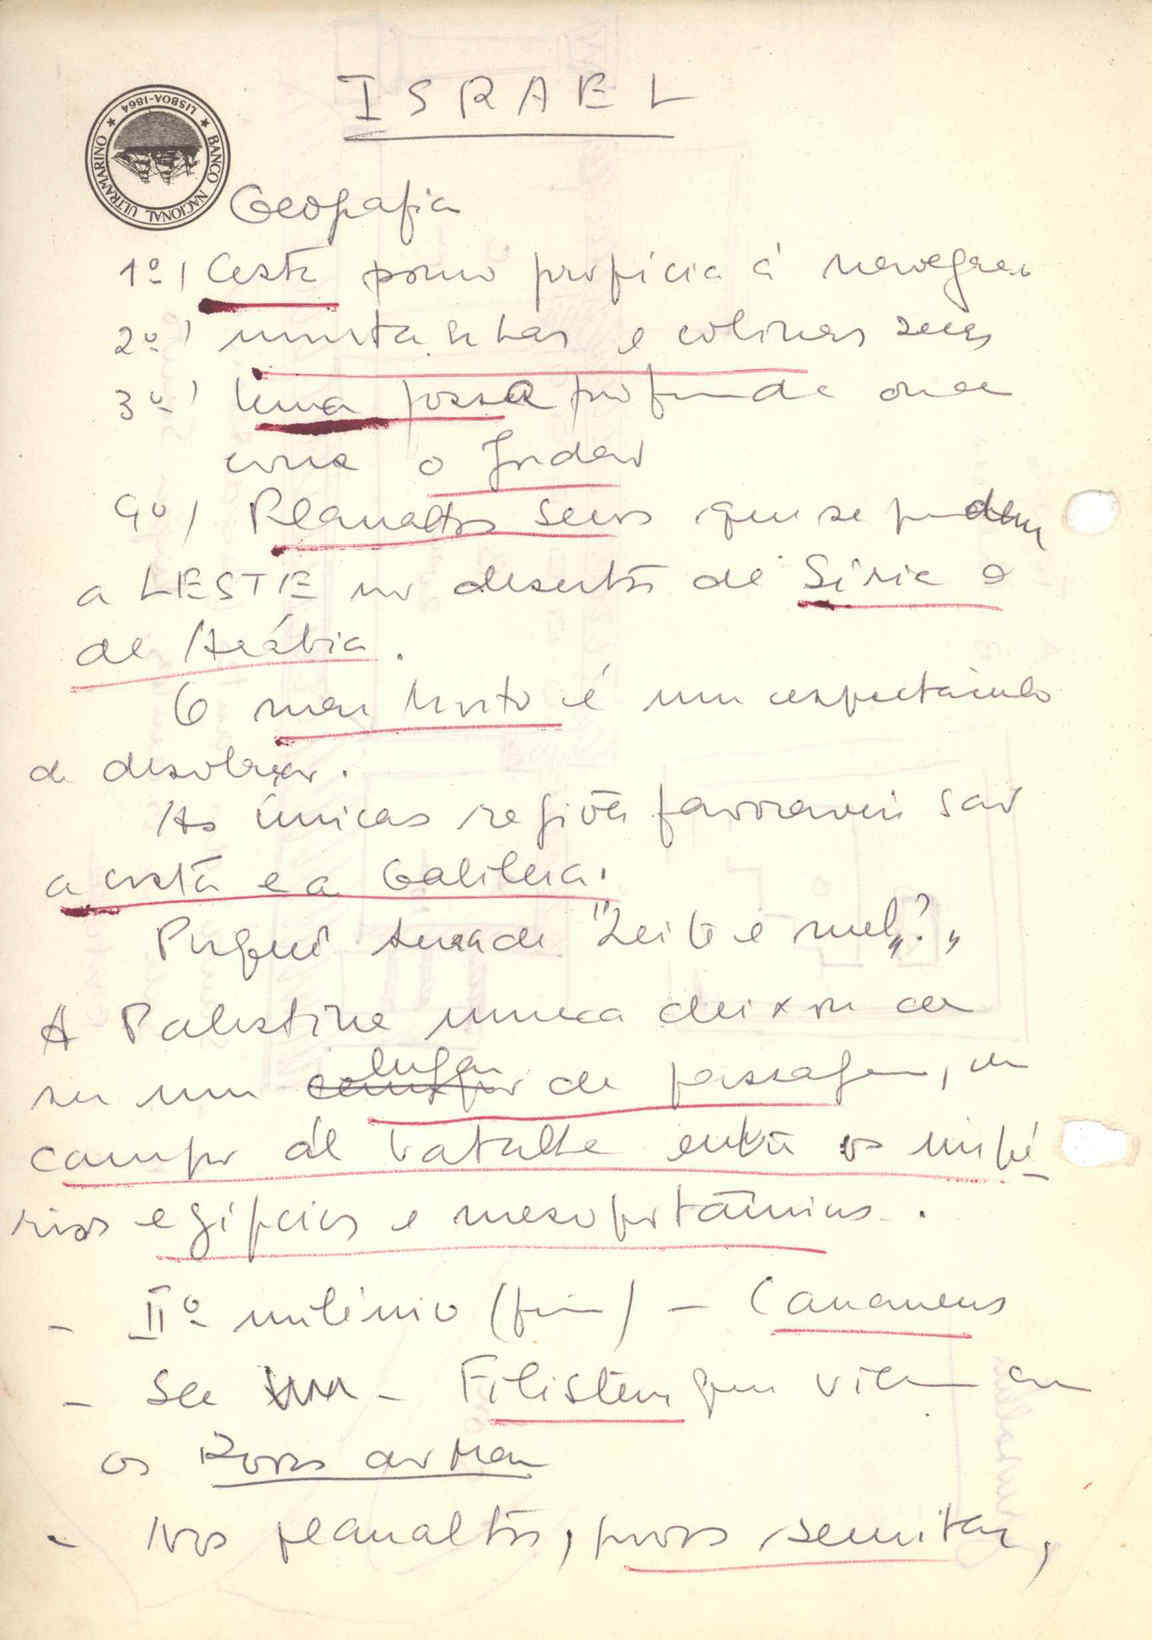 ISRAEL
BANCO NACIONAL ULTRAMARINO
LISBOA-1864
Geografia
1º) Costa pouco propícia à navegação
2º) montanhas e colinas secas
3º) Uma fossa profunda onde
corre o Jordão
4º) Planaltos secos que se perdem
a LESTE nos desertos de Síria e
de Arábia.
O mar Morto é um espectáculo
de desolação.
As únicas regiões favoráveis são
a costa e a Galileia.
Porquê terra de "Leite e mel"?
A Palestina nunca deixou de
ser um lugar de passagem, um
campo de batalha entre os impé-
rios egípcios e mesopotâmicos.
- IIº milénio (fim) - Cananeus
- Filisteus que vieram com
os Povos do Mar
- Nos planaltos, povos semitas,